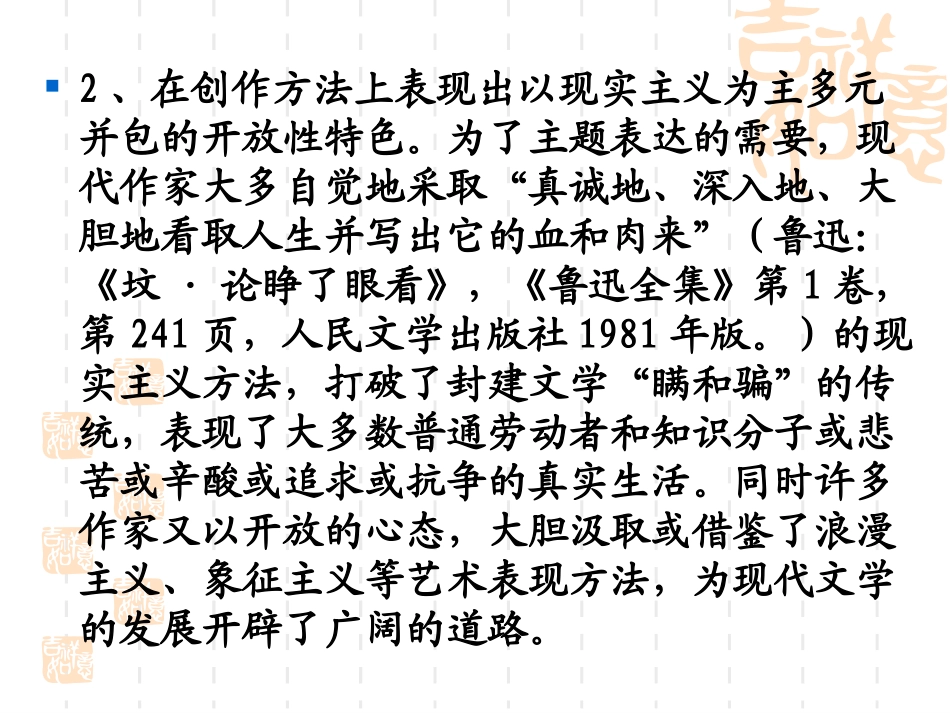 吉祥
如意
2、在创作方法上表现出以现实主义为主多元
并包的开放性特色。为了主题表达的需要，现
代作家大多自觉地采取“真诚地、深入地、大
胆地看取人生并写出它的血和肉来”（鲁迅：
《坟·论睁了眼看》，《鲁迅全集》第1卷，
第241页，人民文学出版社1981年版。）的现
实主义方法，打破了封建文学“瞒和骗”的传
统，表现了大多数普通劳动者和知识分子或悲
苦或辛酸或追求或抗争的真实生活。同时许多
作家又以开放的心态，大胆汲取或借鉴了浪漫
主义、象征主义等艺术表现方法，为现代文学
的发展开辟了广阔的道路。